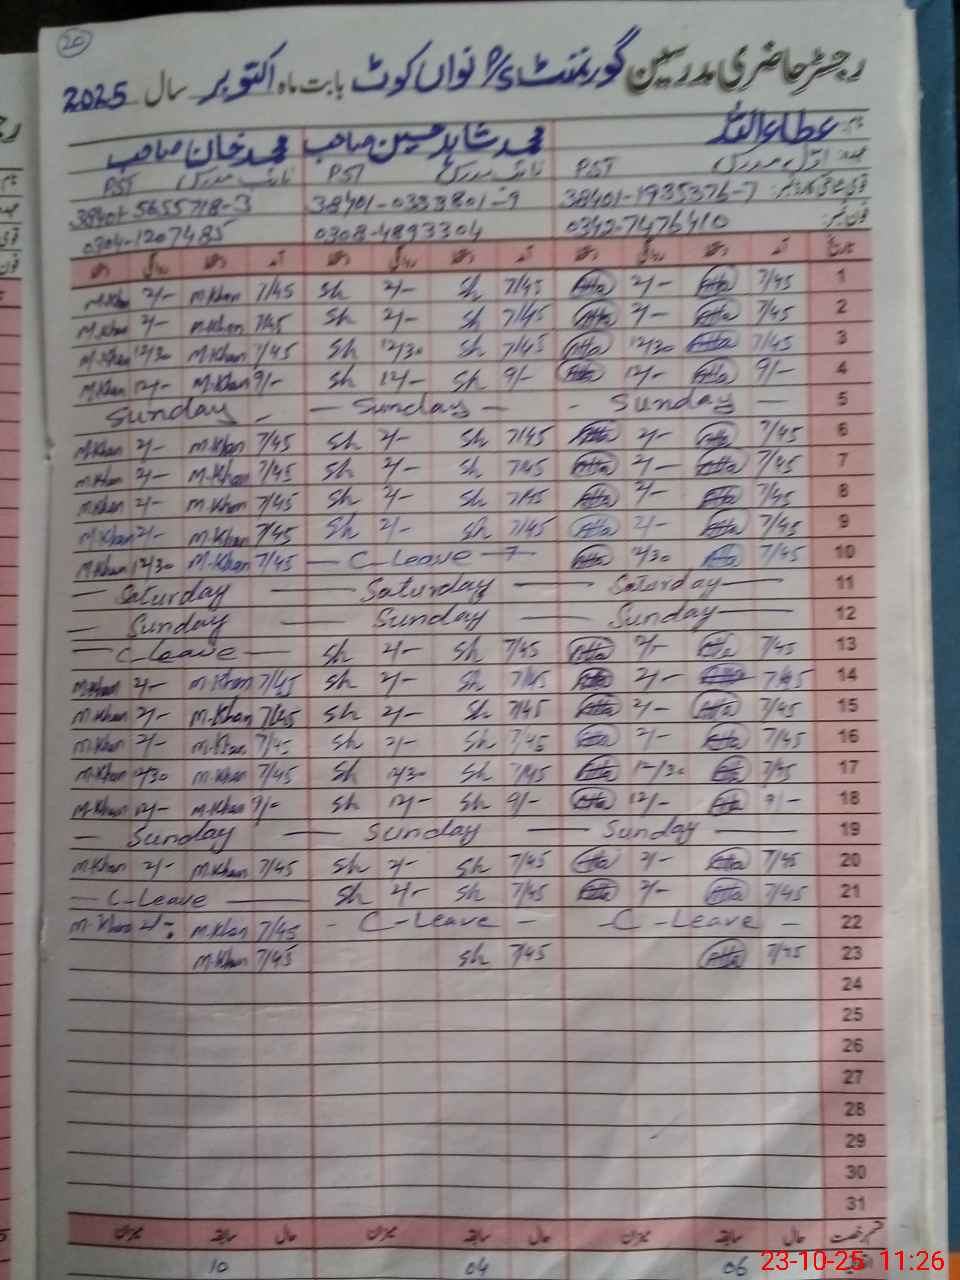 20
رجسٹر حاضری مدرسین گورنمنٹ P/S نواں کوٹ بابت ماہ اکتوبر سال 2025
نام: عطاءاللہ محمد شاہد حسین صاحب محمد خان صاحب
عہدہ: اول مدرس PST نائب مدرس PST نائب مدرس PST
38401-1935376-7 38401-0333801-9 38401-5655718-3
فون نمبر: 0342-7476410 0308-4893304 0304-1207485
تاریخ آمد دستخط روانگی دستخط آمد دستخط روانگی دستخط آمد دستخط روانگی دستخط
M.Khan 2/- M.Khan 7/45 Sh 2/- Sh 7/45 Atta 2/- Atta 7/45 1
M.Khan 2/- M.Khan 7/45 Sh 2/- Sh 7/45 Atta 2/- Atta 7/45 2
M.Khan 12/30 M.Khan 7/45 Sh 12/30 Sh 7/45 Atta 12/30 Atta 7/45 3
M.Khan 12/- M.Khan 9/- Sh 12/- Sh 9/- Atta 12/- Atta 9/- 4
Sunday - — Sunday — - Sunday — 5
M.Khan 2/- M.Khan 7/45 Sh 2/- Sh 7/45 Atta 2/- Atta 7/45 6
M.Khan 2/- M.Khan 7/45 Sh 2/- Sh 7/45 Atta 2/- Atta 7/45 7
M.Khan 2/- M.Khan 7/45 Sh 2/- Sh 7/45 Atta 2/- Atta 7/45 8
M.Khan 2/- M.Khan 7/45 Sh 2/- Sh 7/45 Atta 2/- Atta 7/45 9
M.Khan 12/30 M.Khan 7/45 — C-Leave — Atta 12/30 Atta 7/45 10
— Saturday — Saturday — Saturday — 11
— Sunday — Sunday — Sunday — 12
— C-Leave — Sh 2/- Sh 7/45 Atta 2/- Atta 7/45 13
M.Khan 2/- M.Khan 7/45 Sh 2/- Sh 7/45 Atta 2/- Atta 7/45 14
M.Khan 2/- M.Khan 7/45 Sh 2/- Sh 7/45 Atta 2/- Atta 7/45 15
M.Khan 2/- M.Khan 7/45 Sh 2/- Sh 7/45 Atta 2/- Atta 7/45 16
M.Khan 12/30 M.Khan 7/45 Sh 12/30 Sh 7/45 Atta 12/30 Atta 7/45 17
M.Khan 12/- M.Khan 9/- Sh 12/- Sh 9/- Atta 12/- Atta 9/- 18
— Sunday — Sunday — Sunday — 19
M.Khan 2/- M.Khan 7/45 Sh 2/- Sh 7/45 Atta 2/- Atta 7/45 20
— C-Leave — Sh 2/- Sh 7/45 Atta 2/- Atta 7/45 21
M.Khan 2/- M.Khan 7/45 - C-Leave - - C-Leave - 22
M.Khan 7/45 Sh 7/45 Atta 7/45 23
24
25
26
27
28
29
30
31
قسم رخصت حال سابقہ میزان حال سابقہ میزان حال سابقہ میزان
10 04 06
23-10-25 11:26